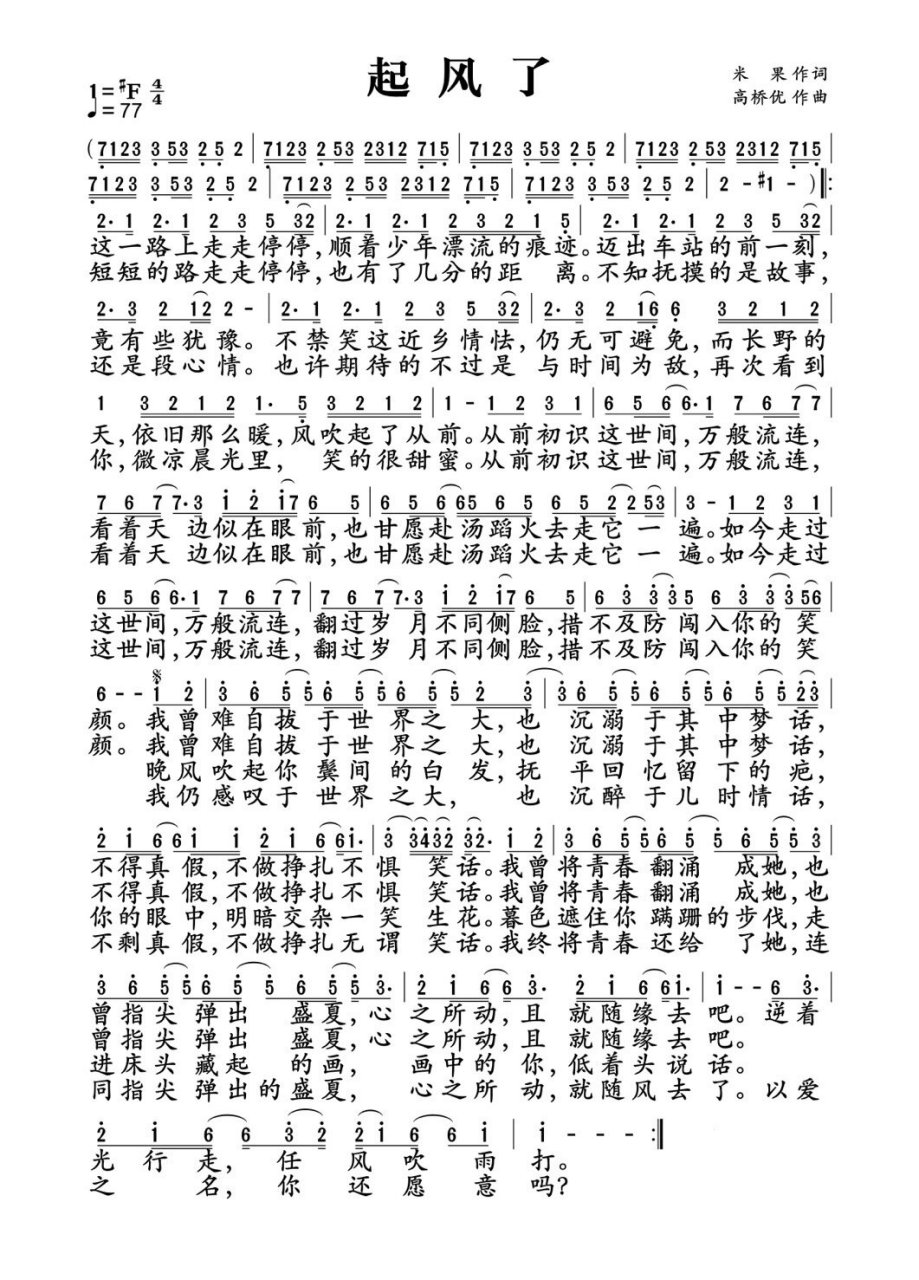 起风了
米 果 作词
高桥优 作曲
1=#F 4/4
♩=77
(7123 3 53 2 5 2 | 7123 2 53 2312 715 | 7123 3 53 2 5 2 | 7123 2 53 2312 715 |
7123 3 53 2 5 2 | 7123 2 53 2312 715 | 7123 3 53 2 5 2 | 2 - #1 - )‖:
2· 1 2· 1 2 3 5 32 | 2· 1 2· 1 2 3 2 1 5 | 2· 1 2· 1 2 3 5 32 |
这一路上走走停停,顺着少年漂流的痕迹。迈出车站的前一刻,
短短的路走走停停,也有了几分的距 离。不知抚摸的是故事,
2· 3 2 12 2 - | 2· 1 2· 1 2 3 5 32 | 2· 3 2 16 6 3 2 1 2 |
竟有些犹豫。不禁笑这近乡情怯,仍无可避免,而长野的
还是段心情。也许期待的不过是 与时间为敌,再次看到
1 3 2 1 2 1· 5 3 2 1 2 | 1 - 1 2 3 1 | 6 5 6 6· 1 7 6 7 7 |
天,依旧那么暖,风吹起了从前。从前初识这世间,万般流连,
你,微凉晨光里, 笑的很甜蜜。从前初识这世间,万般流连,
7 6 7 7· 3 i 2 i7 6 5 | 6 5 6 65 6 5 6 5 2 2 53 | 3 - 1 2 3 1 |
看着天 边似在眼前,也甘愿赴汤蹈火去走它一 遍。如今走过
看着天 边似在眼前,也甘愿赴汤蹈火去走它一 遍。如今走过
6 5 6 6· 1 7 6 7 7 | 7 6 7 7· 3 i 2 i7 6 5 | 6 3 3 3 5 6 3 3 356 |
这世间,万般流连,翻过岁 月不同侧脸,措不及防 闯入你的 笑
这世间,万般流连,翻过岁 月不同侧脸,措不及防 闯入你的 笑
6 - - i 2 | 3 6 5 5 6 5 5 6 5 5 2 3 | 3 6 5 5 6 5 5 6 5 5 23 |
颜。我曾难自拔 于世 界之 大,也 沉溺 于其 中梦 话,
颜。我曾难自拔 于世 界之 大,也 沉溺 于其 中梦 话,
晚风吹起你 鬓间 的白 发,抚 平回 忆留 下的 疤,
我仍感叹于 世界 之大, 也 沉醉 于儿 时情 话,
2 i 6 6i i 2 i 6 6i· | 3 3432 32· i 2 | 3 6 5 5 6 5 5 6 5 5 3 |
不得真 假,不做挣扎不 惧 笑话。我曾将青春 翻涌 成她,也
不得真 假,不做挣扎不 惧 笑话。我曾将青春 翻涌 成她,也
你的眼 中,明暗交杂一 笑 生花。暮色遮住你 蹒跚的步伐,走
不剩真 假,不做挣扎无 谓 笑话。我终将青春 还给 了她,连
3 6 5 5 6 5 5 6 5 5 3· | 2 i 6 6 3· 2 i 6 6i· | i - - 6 3· |
曾指尖 弹出 盛夏,心 之所动,且 就随缘去 吧。逆着
曾指尖 弹出 盛夏,心 之所动,且 就随缘去 吧。
进床头 藏起 的画, 画中的 你,低着头说 话。
同指尖 弹出的盛夏, 心之所 动,就随风去 了。以爱
2 i 6 6 3 2 2 i 6 6 i | i - - - :‖
光 行 走, 任 风 吹 雨 打。
之 名, 你 还 愿 意 吗?